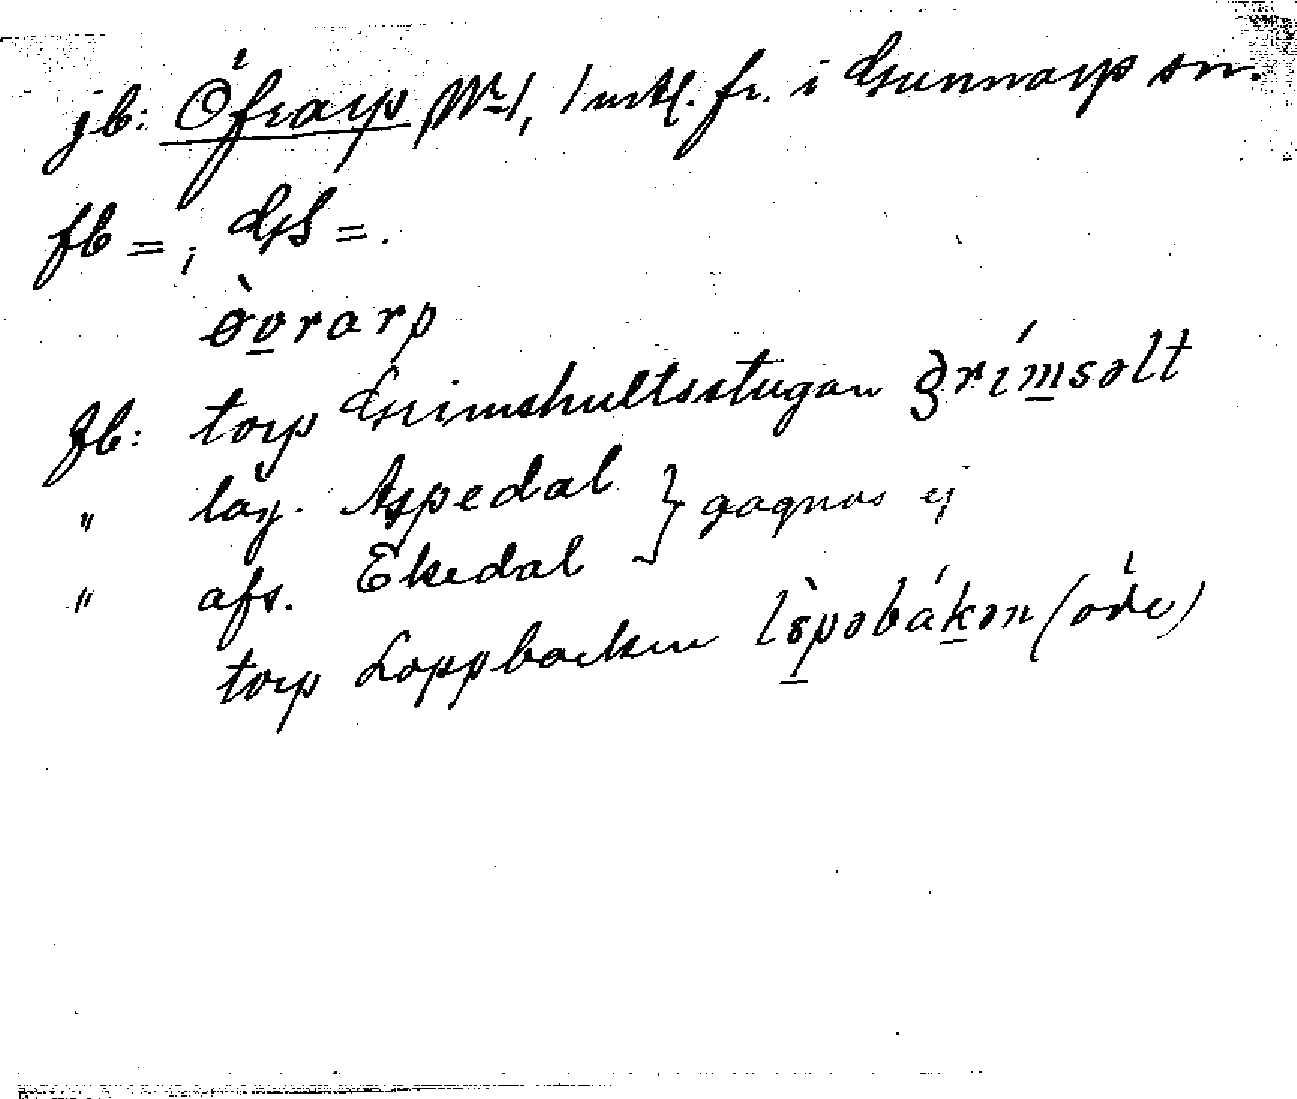 jb: Öfrarp № 1, 1 mtl. fr. i Gunnarp sn.
fb =, GS =.
övrarp
fb: torp Grimshultsstugan grímsəlt
" läg. Aspedal } gagnas ej
" afs. Ekedal
torp Loppbacken lòpəbákən (öde)